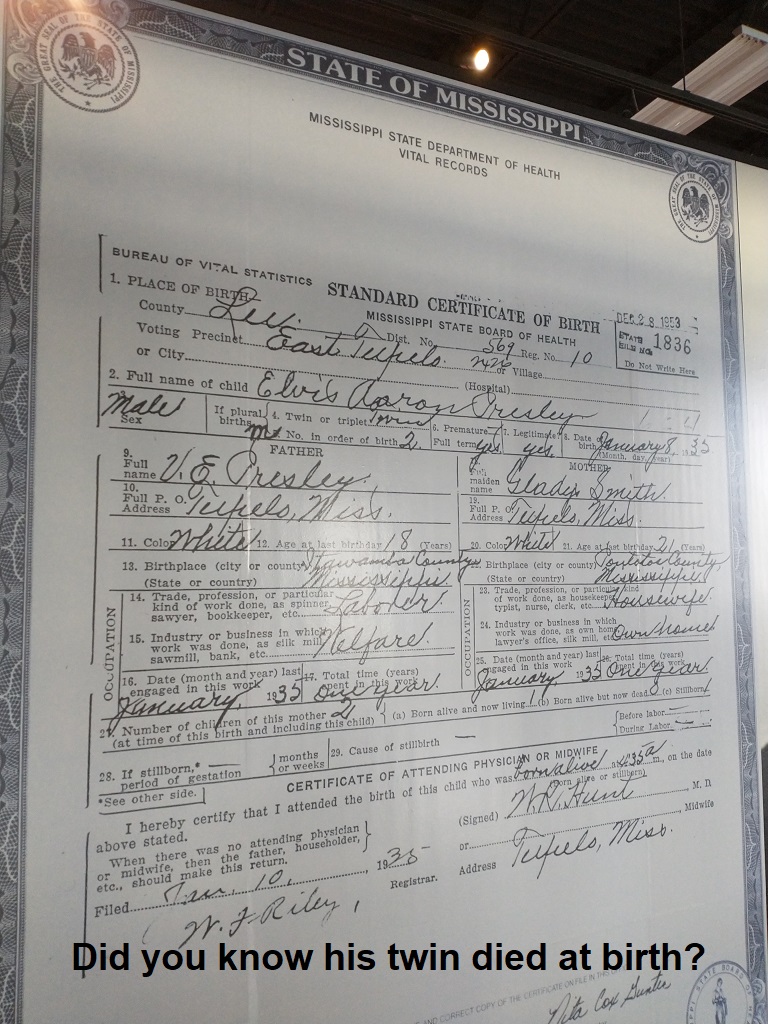 THE GREAT SEAL OF THE STATE OF MISSISSIPPI
STATE OF MISSISSIPPI
THE GREAT SEAL OF THE STATE OF MISSISSIPPI
MISSISSIPPI STATE DEPARTMENT OF HEALTH
VITAL RECORDS
BUREAU OF VITAL STATISTICS
STANDARD CERTIFICATE OF BIRTH
MISSISSIPPI STATE BOARD OF HEALTH
DEC 28 1953
STATE FILE NO. 1836
Do Not Write Here
1. PLACE OF BIRTH
County Lee Dist. No. 569 Reg. No. 10
Voting Precinct East Tupelo or Village
or City (Hospital)
2. Full name of child Elvis Aaron Presley
Male Sex
If plural births 4. Twin or triplet Twin
No. in order of birth 2
6. Premature Full term yes
7. Legitimate? yes.
8. Date of January 8, 1935
(Month, day, year)
FATHER
9. Full name V. E. Presley.
10. Full P. O. Address Tupelo, Miss.
11. Color White 12. Age at last birthday 18 (Years)
13. Birthplace (city or county) Itawamba County
(State or country) Mississippi
OCCUPATION
14. Trade, profession, or particular kind of work done, as spinner, sawyer, bookkeeper, etc. Laborer
15. Industry or business in which work was done, as silk mill, sawmill, bank, etc. Welfare.
16. Date (month and year) last engaged in this work January, 1935
17. Total time (years) spent in this work one year.
MOTHER
Full maiden name Gladys Smith
19. Full P. O. Address Tupelo, Miss.
20. Color White 21. Age at last birthday 21 (Years)
Birthplace (city or county) Pontotoc County
(State or country) Mississippi
OCCUPATION
23. Trade, profession, or particular kind of work done, as housekeeper, typist, nurse, clerk, etc. Housewife.
24. Industry or business in which work was done, as own home, lawyer's office, silk mill, etc. Own home
25. Date (month and year) last engaged in this work January, 1935
26. Total time (years) spent in this work one year.
27. Number of children of this mother 2
(at time of this birth and including this child) (a) Born alive and now living (b) Born alive but now dead (c) Stillborn
28. If stillborn,* period of gestation months or weeks
29. Cause of stillbirth
Before labor
During Labor
*See other side.
CERTIFICATE OF ATTENDING PHYSICIAN OR MIDWIFE
I hereby certify that I attended the birth of this child who was born alive at 4:35 a m., on the date above stated.
(Born alive or stillborn)
When there was no attending physician or midwife, then the father, householder, etc., should make this return.
(Signed) W. R. Hunt, M. D.
or Midwife
Address Tupelo, Miss.
Filed Jan. 10, 1935
W. F. Riley, Registrar.
Did you know his twin died at birth?
AND CORRECT COPY OF THE CERTIFICATE ON FILE IN THIS
Nita Cox Gunter